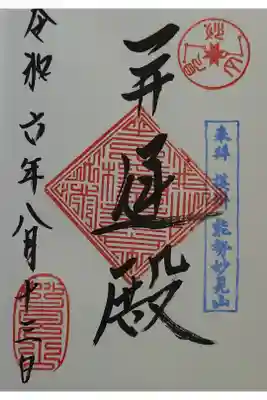 奉拝 摂州 能勢妙見山
开運殿
令和六年八月十三日